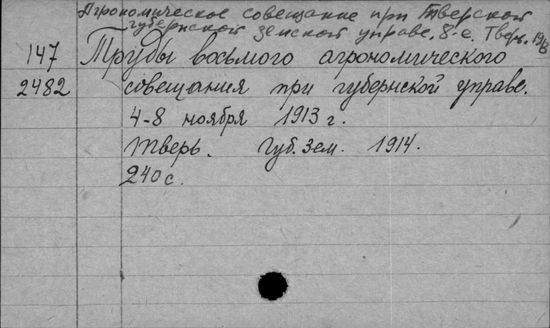 Агрономическое совещание при Тверской
губернской земской управе. 8-е. Тверь. 1913
147 Труды восьмого агрономического
2482 совещания при губернской управе.
4-8 ноября 1913 г.
Тверь. Губ. зем. 1914.
240 с.